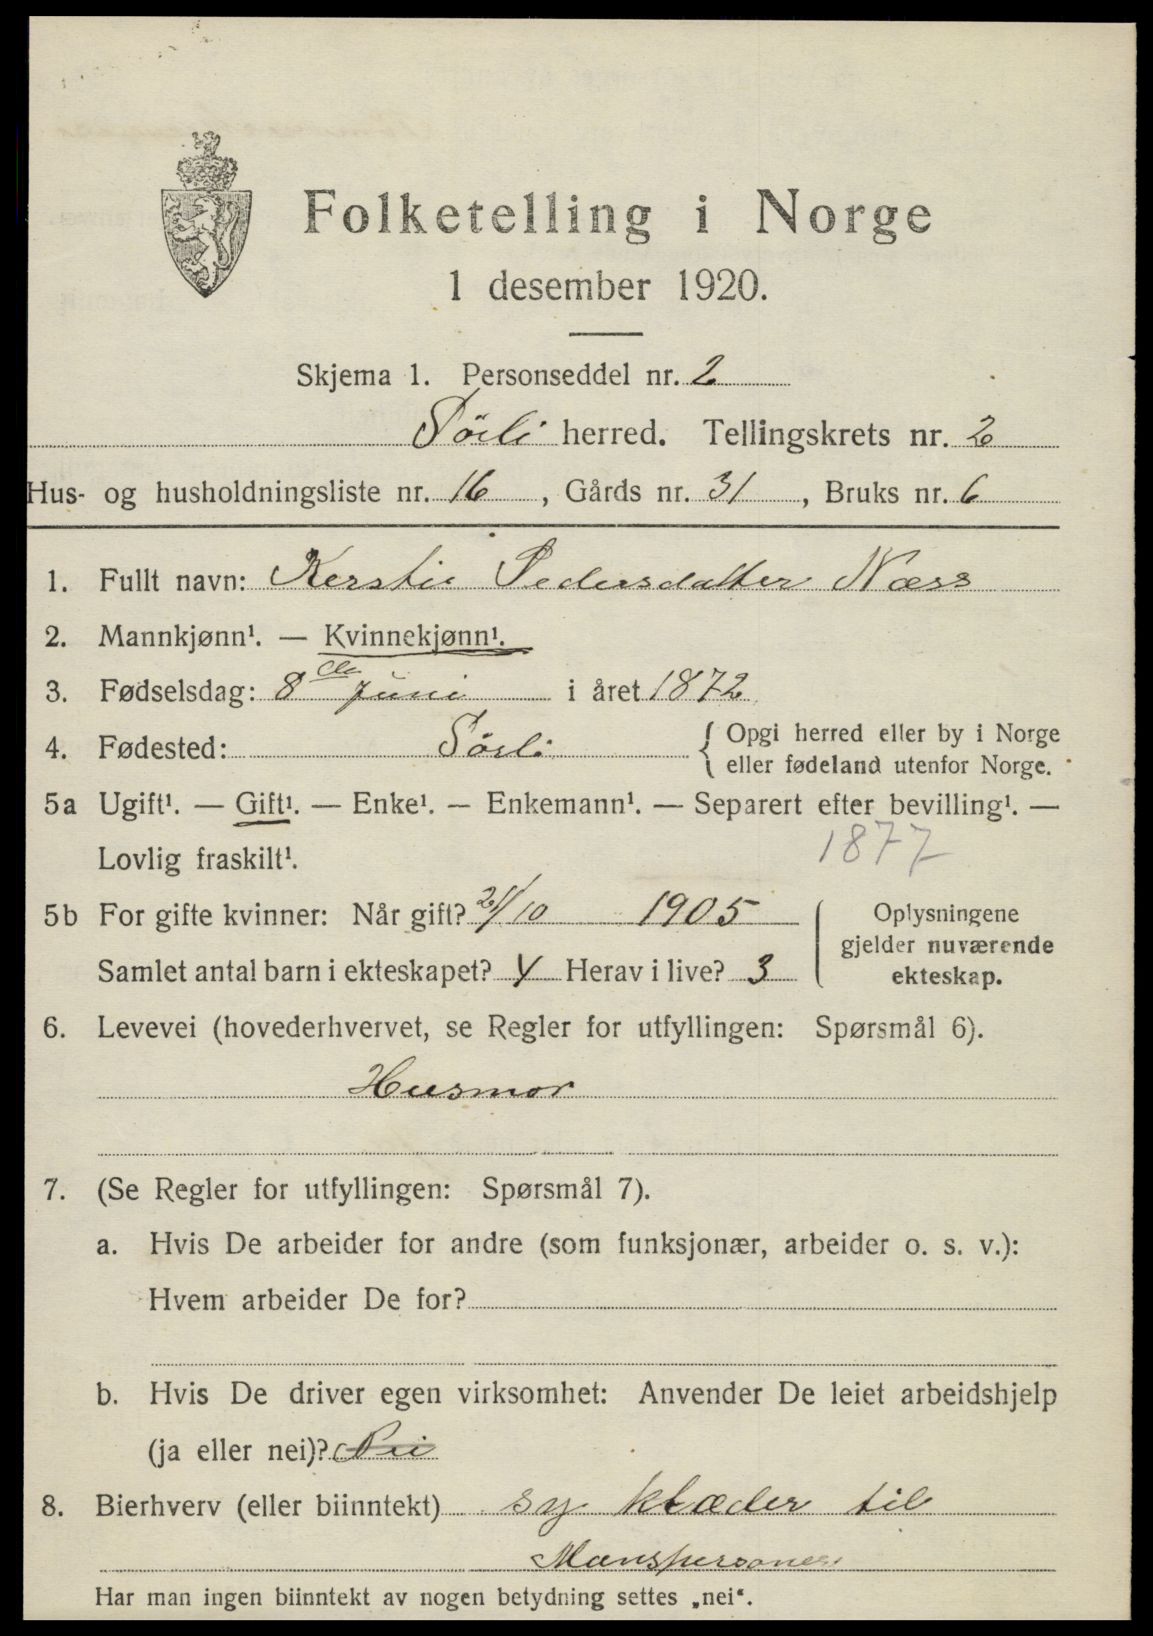 Folketelling i Norge
1 desember 1920.
Skjema 1. Personseddel nr. 2
Sörli herred. Tellingskrets nr. 2
Hus- og husholdningsliste nr. 16, Gårds nr. 31, Bruks nr. 6
1. Fullt navn: Kerstie Pedersdatter Næss
2. Mannkjønn¹. — Kvinnekjønn¹.
3. Fødselsdag: 8de Juni i året 1872
4. Fødested: Sörli { Opgi herred eller by i Norge
eller fødeland utenfor Norge.
5a Ugift¹. — Gift¹. — Enke¹. — Enkemann¹. — Separert efter bevilling¹. —
Lovlig fraskilt¹. 1877
5b For gifte kvinner: Når gift? 21/10 1905
Samlet antal barn i ekteskapet? 4 Herav i live? 3
Oplysningene
gjelder nuværende
ekteskap.
6. Levevei (hovederhvervet, se Regler for utfyllingen: Spørsmål 6).
Husmor
7. (Se Regler for utfyllingen: Spørsmål 7).
a. Hvis De arbeider for andre (som funksjonær, arbeider o. s. v.):
Hvem arbeider De for?
b. Hvis De driver egen virksomhet: Anvender De leiet arbeidshjelp
(ja eller nei)? Nei
8. Bierhverv (eller biinntekt) sy klæder til
Manspersoner
Har man ingen biinntekt av nogen betydning settes „nei“.